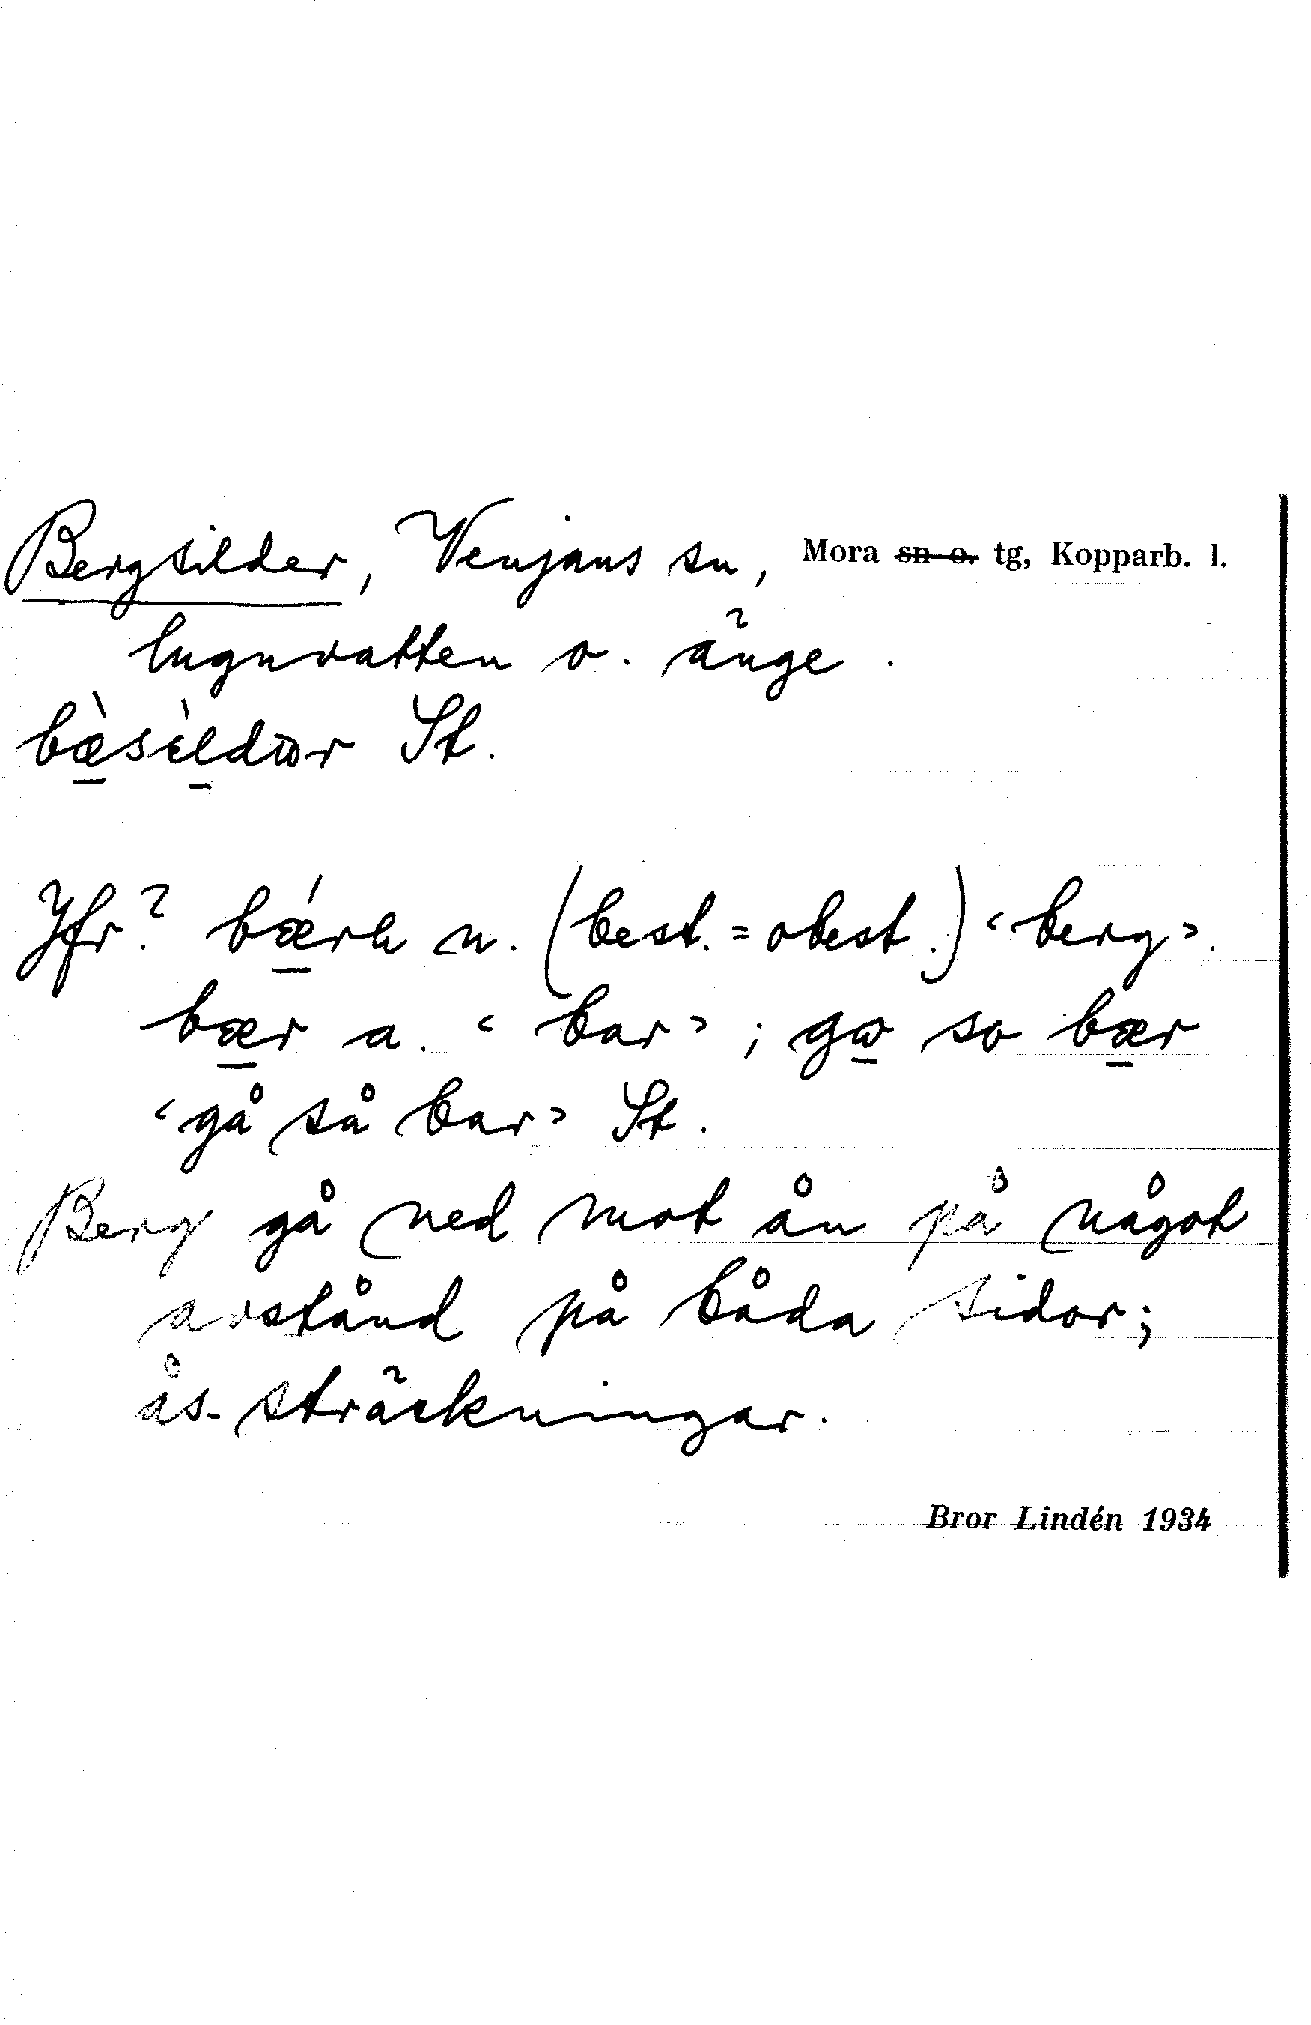 Bergsilder, Venjans sn, Mora ~~sn o.~~ tg, Kopparb. l.
lugnvatten o. änge.
bæ̀sìldωr St.
Jfr? bǽrh n. (best. = obest.) ‹berg›.
bær a. ‹bar›; gω so bær
‹gå så bar› St.
Berg gå ned mot ån på något
avstånd på båda sidor;
ås-sträckningar.
Bror Lindén 1934